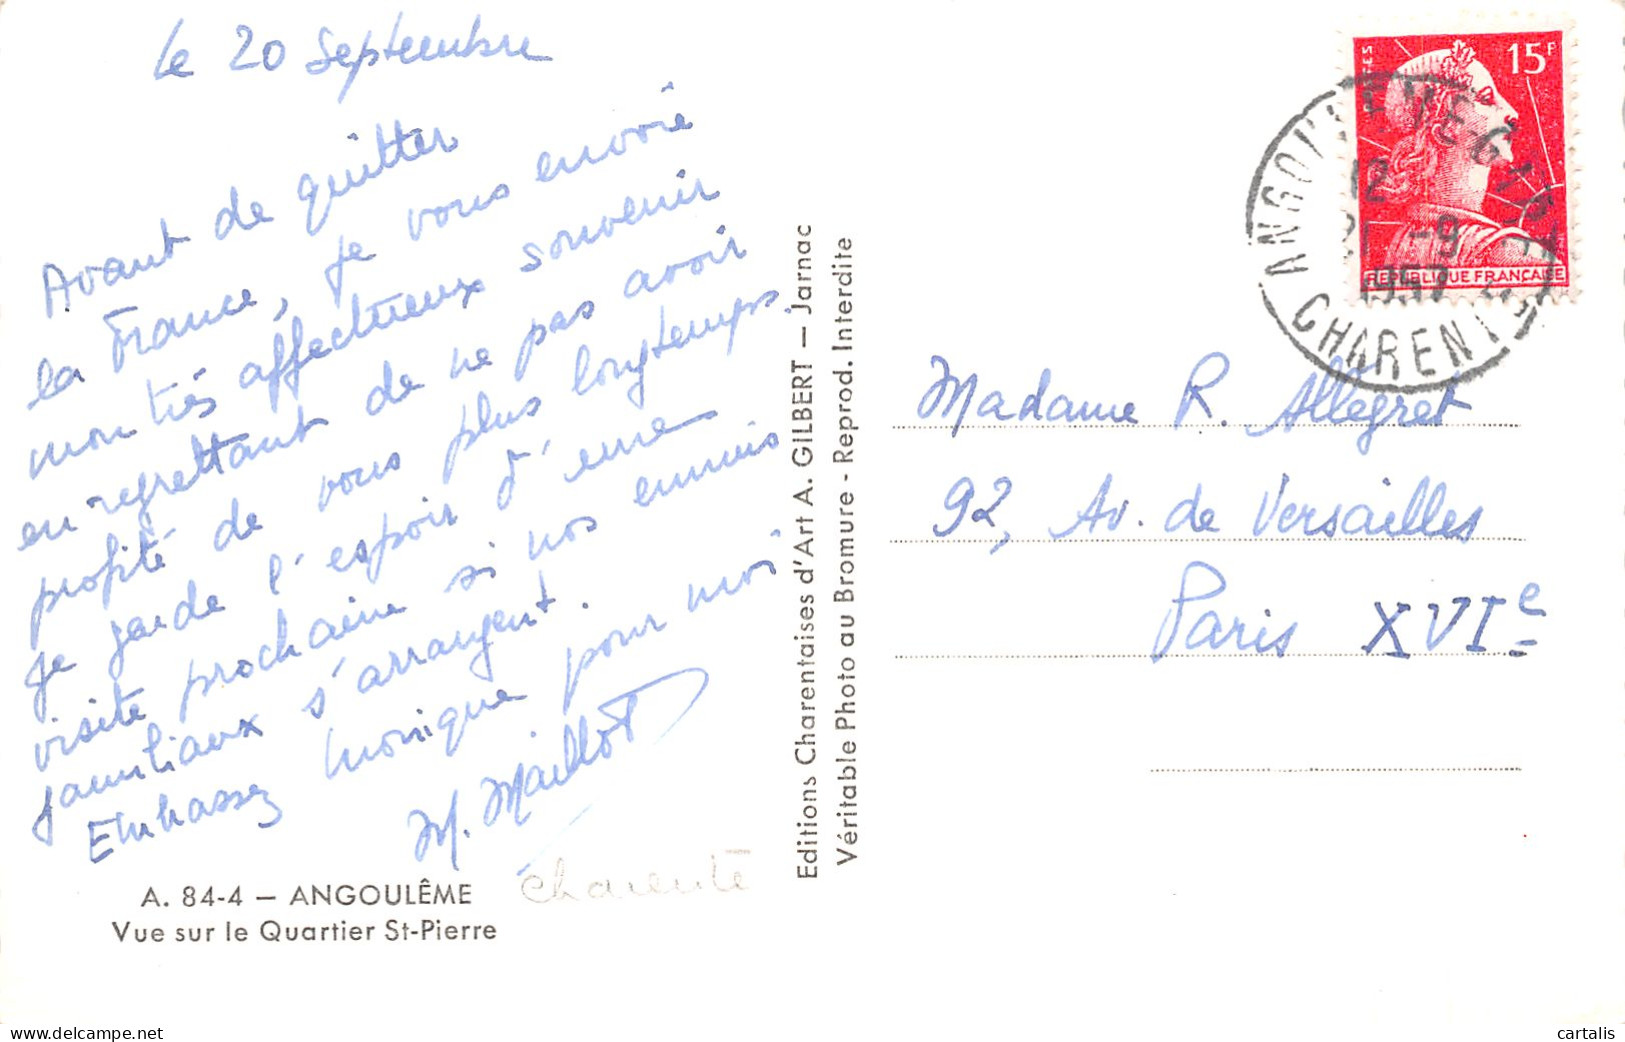 le 20 Septembre
Avant de quitter
la France, je vous envoie
mon très affectueux souvenir
en regrettant de ne pas avoir
profité de vous plus longtemps.
Je garde l'espoir d'une
visite prochaine si nos ennuis
familiaux s'arrangent.
Embrassez Monique pour moi
M. Maillot
A. 84-4 — ANGOULÊME
Vue sur le Quartier St-Pierre
charente
Editions Charentaises d'Art A. GILBERT — Jarnac
Véritable Photo au Bromure - Reprod. Interdite
15F
REPUBLIQUE FRANÇAISE
12
21 -9
1957
CHARENTE
Madame R. Allégret
92, Av. de Versailles
Paris XVIe
www.delcampe.net
cartalis